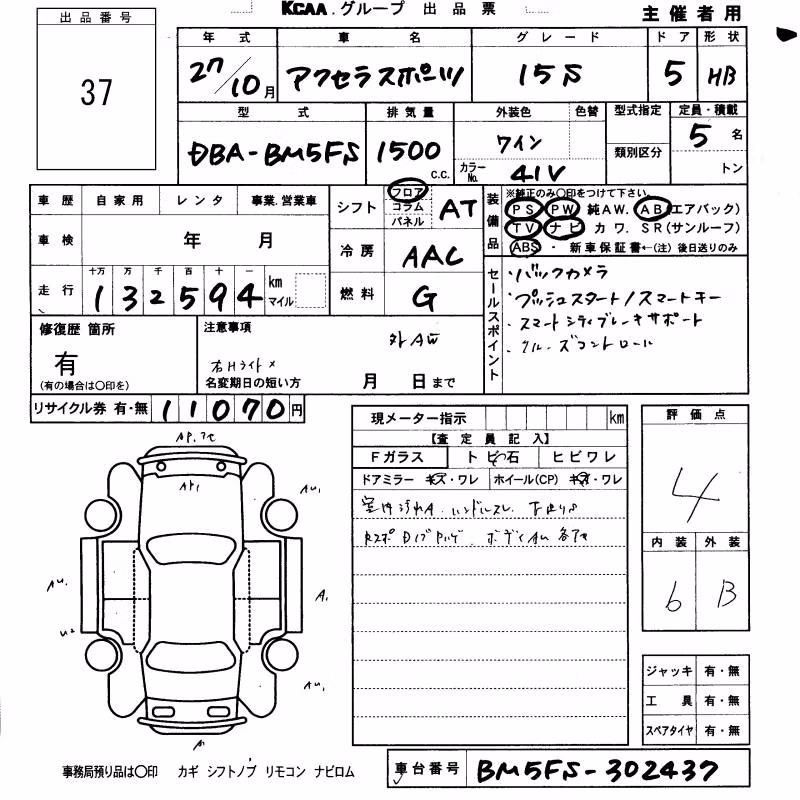 KCAA.グループ 出品票
主催者用
出品番号
37
年式 車名 グレード ドア 形状
27/10月 アクセラスポーツ 15S 5 HB
型式 排気量 外装色 色替 型式指定 定員・積載
DBA-BM5FS 1500 c.c. ワイン 類別区分 5名
カラーNo. 41V トン
車歴 自家用 レンタ 事業.営業車
シフト フロア コラム パネル AT
車検 年 月
冷房 AAC
走行 十万 万 千 百 十 一
132594 km マイル
燃料 G
装備品
※純正のみ○印をつけて下さい。
PS PW 純AW. AB(エアバック)
TV ナビ カワ. SR(サンルーフ)
ABS ・ 新車保証書←(注)後日送りのみ
セールスポイント
・バックカメラ
・プッシュスタート/スマートキー
・スマートシティブレーキサポート
・クルーズコントロール
修復歴 箇所
有
(有の場合は○印を)
注意事項
外AW
右Hライト×
名変期日の短い方 月 日まで
リサイクル券 有・無 11070円
現メーター指示 km
【査定員記入】
Fガラス トビ石 ヒビワレ
ドアミラー キズ・ワレ ホイール(CP) キズ・ワレ
評価点
4
内装 外装
6 B
AU.
AU.
U2
A.
AU.
ジャッキ 有・無
工具 有・無
スペアタイヤ 有・無
事務局預り品は○印 カギ シフトノブ リモコン ナビロム
車台番号 BM5FS-302437